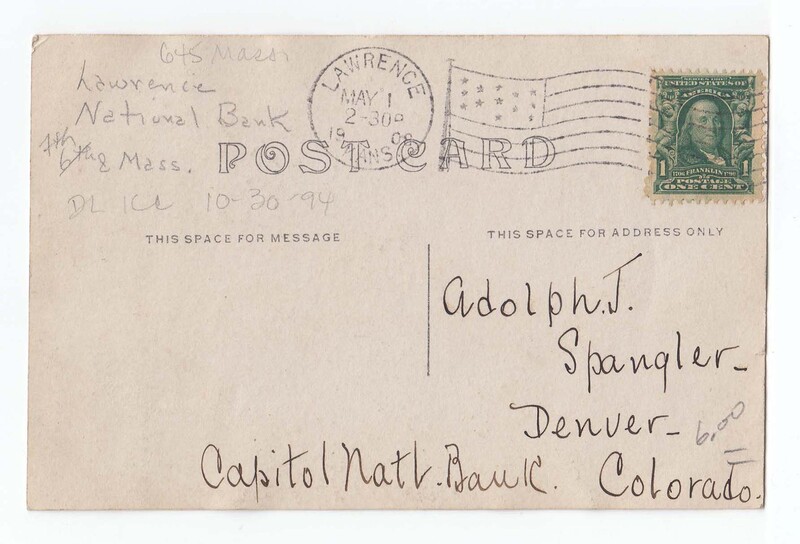 645 Mass.
Lawrence
National Bank
7th
6th & Mass.
DL ICL 10-30-94
LAWRENCE
MAY 1
2-30P
1908
KANS.
POST CARD
THIS SPACE FOR MESSAGE
THIS SPACE FOR ADDRESS ONLY
SERIES 1902
UNITED STATES OF
AMERICA
1 1
1706 FRANKLIN 1790
POSTAGE
ONE CENT
Adolph. J.
Spangler-
Denver-
6.00
Capitol Natl. Bank. Colorado.